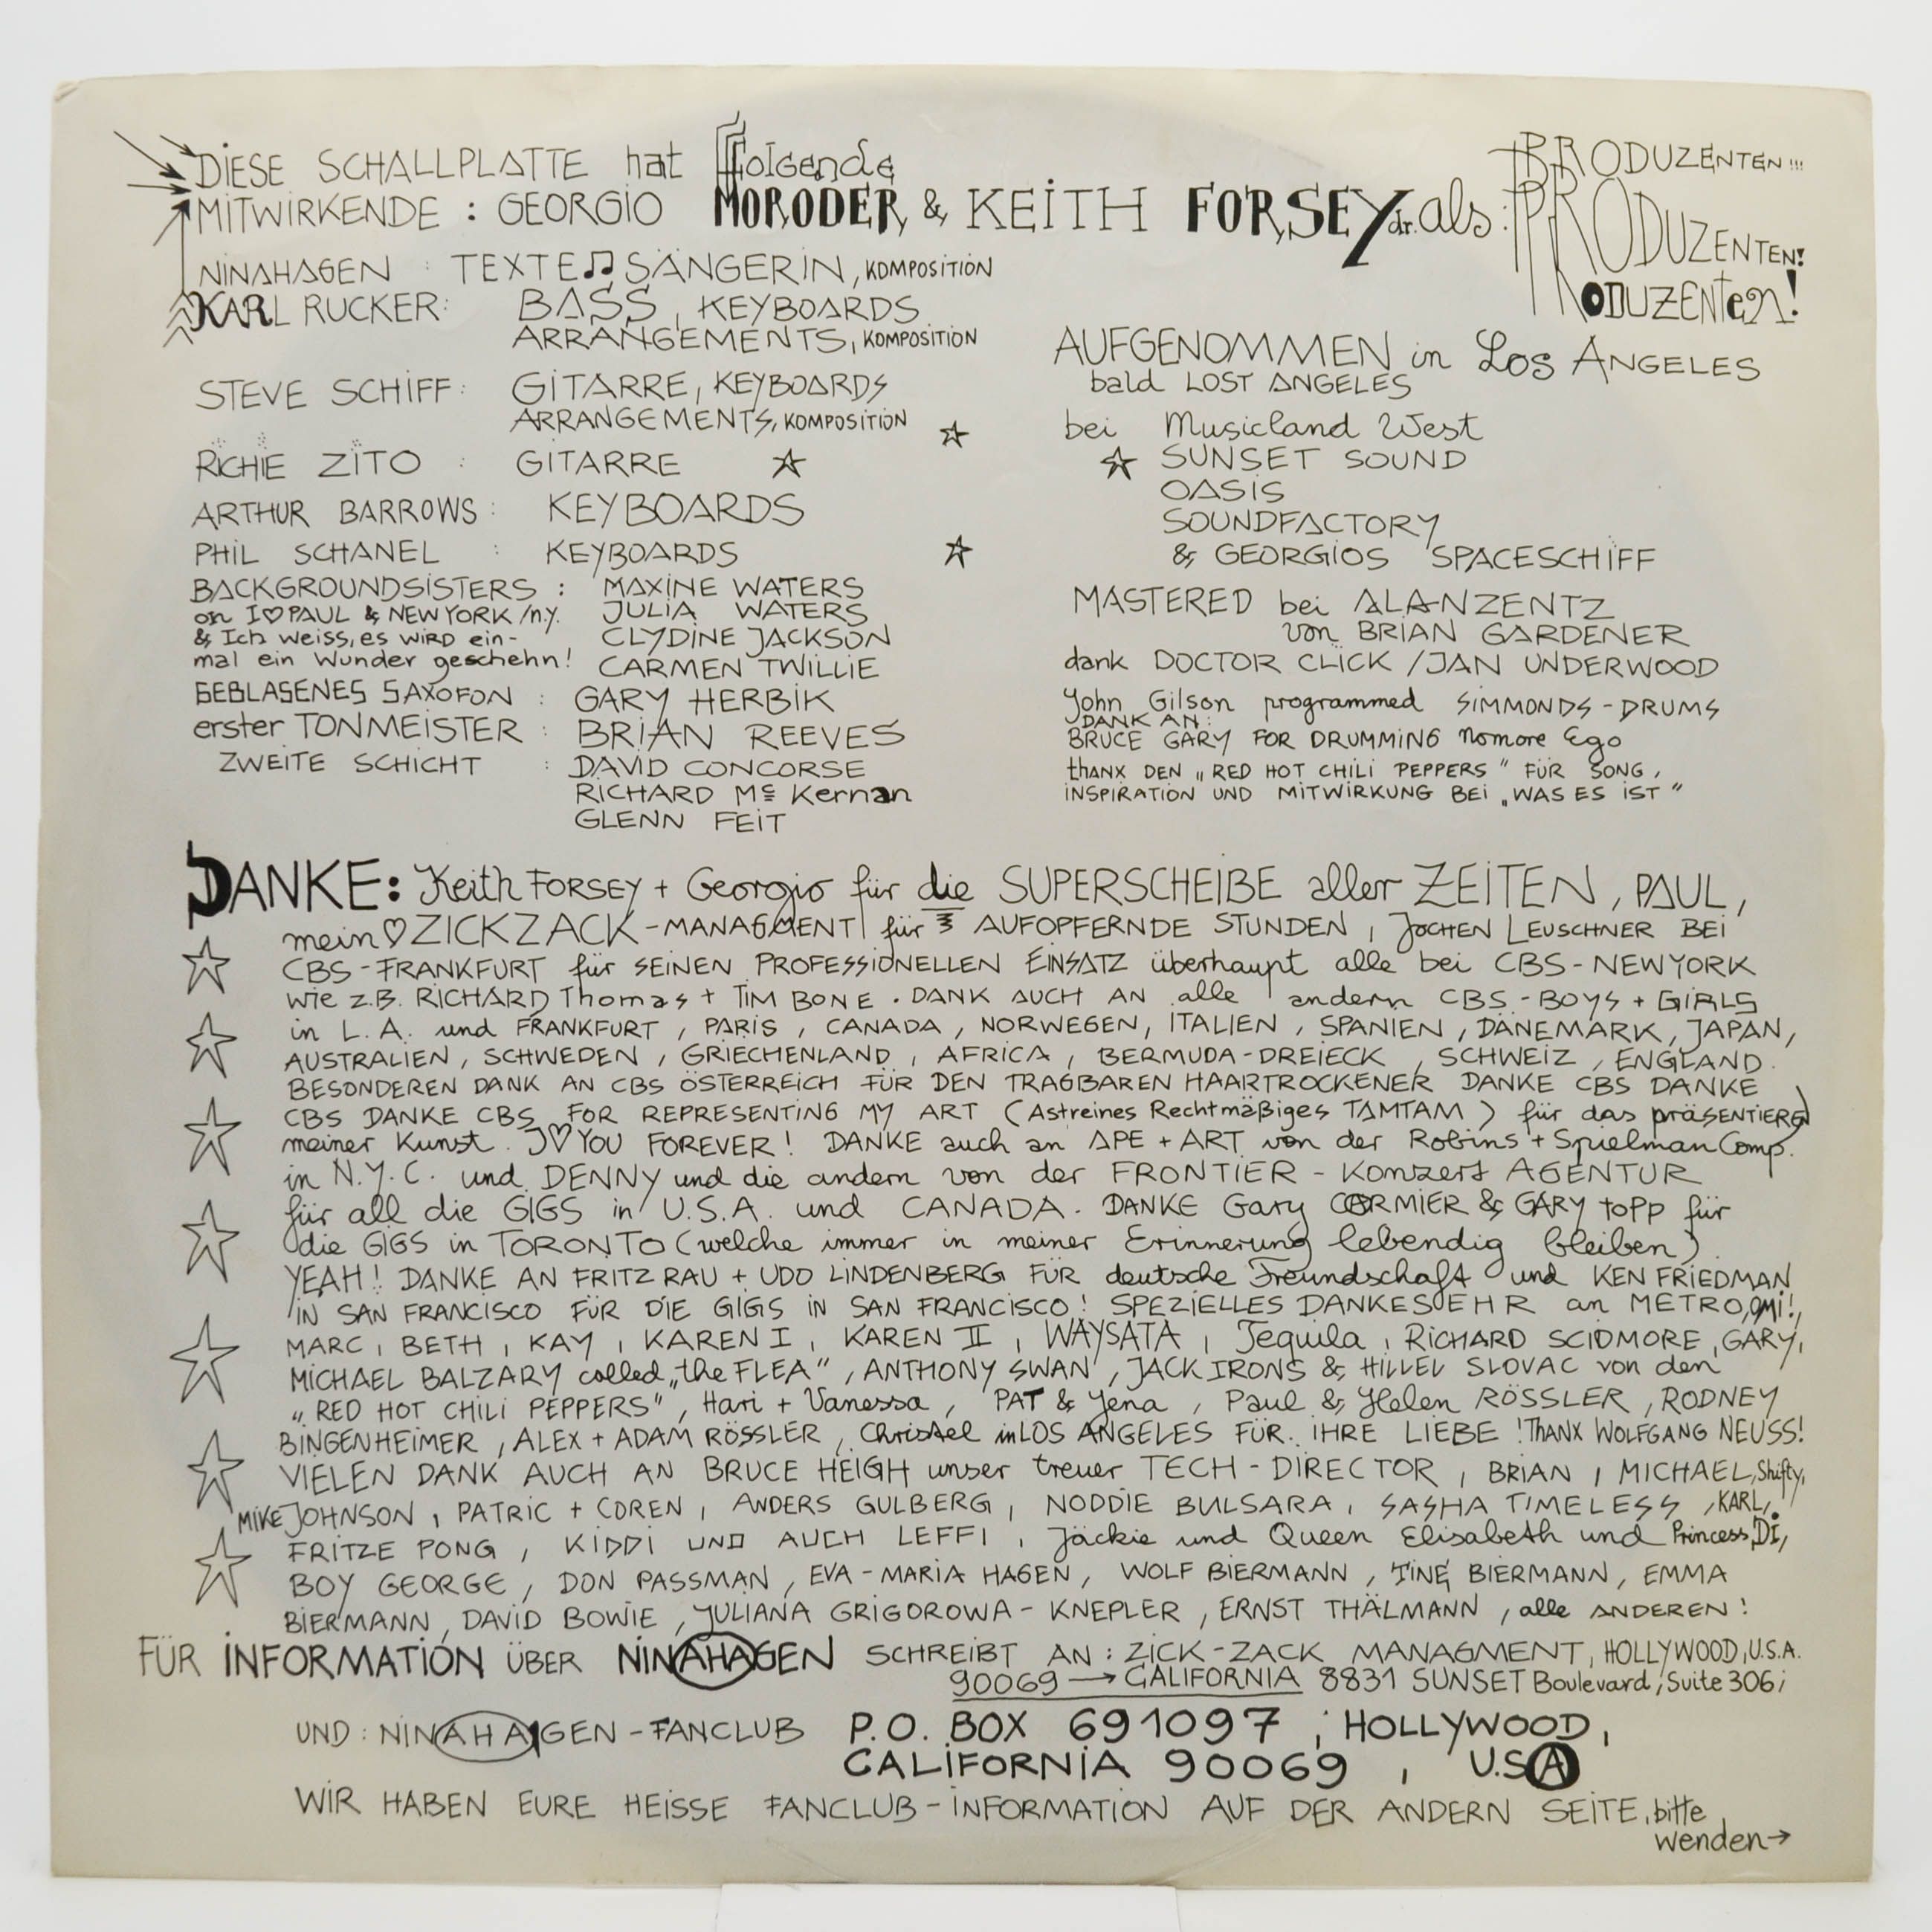 DIESE SCHALLPLATTE hat folgende
MITWIRKENDE : GEORGIO MORODER & KEITH FORSEY dr. als :
PRODUZENTEN!!!
PRODUZENTEN!
PRODUZENTEN!
NINAHAGEN : TEXTE♫ SÄNGERIN, KOMPOSITION
KARL RUCKER: BASS, KEYBOARDS
ARRANGEMENTS, KOMPOSITION
STEVE SCHIFF: GITARRE, KEYBOARDS
ARRANGEMENTS, KOMPOSITION
RICHIE ZITO : GITARRE
ARTHUR BARROWS: KEYBOARDS
PHIL SCHANEL : KEYBOARDS
BACKGROUNDSISTERS : MAXINE WATERS
on I♡PAUL & NEW YORK/n.y. JULIA WATERS
& Ich weiss, es wird ein- CLYDINE JACKSON
mal ein Wunder geschehn! CARMEN TWILLIE
GEBLASENES SAXOFON : GARY HERBIK
erster TONMEISTER : BRIAN REEVES
ZWEITE SCHICHT : DAVID CONCORSE
RICHARD Mc Kernan
GLENN FEIT
AUFGENOMMEN in Los ANGELES
bald LOST ANGELES
bei Musicland West
SUNSET SOUND
OASIS
SOUNDFACTORY
& GEORGIOS SPACESCHIFF
MASTERED bei ALANZENTZ
von BRIAN GARDENER
dank DOCTOR CLICK /JAN UNDERWOOD
John Gilson programmed SIMMONDS-DRUMS
DANK AN:
BRUCE GARY FOR DRUMMING Nomore Ego
thanx DEN „RED HOT CHILI PEPPERS" FÜR SONG,
INSPIRATION UND MITWIRKUNG BEI „WAS ES IST"
DANKE: Keith FORSEY + Georgio für die SUPERSCHEIBE aller ZEITEN, PAUL,
mein ♡ ZICKZACK-MANAGMENT für AUFOPFERNDE STUNDEN, JOCHEN LEUSCHNER BEI
CBS-FRANKFURT für SEINEN PROFESSIONELLEN EINSATZ überhaupt alle bei CBS-NEWYORK
wie z.B. RICHARD Thomas + TIM BONE. DANK AUCH AN alle andern CBS-BOYS + GIRLS
in L.A. und FRANKFURT, PARIS, CANADA, NORWEGEN, ITALIEN, SPANIEN, DÄNEMARK, JAPAN,
AUSTRALIEN, SCHWEDEN, GRIECHENLAND, AFRICA, BERMUDA-DREIECK, SCHWEIZ, ENGLAND.
BESONDEREN DANK AN CBS ÖSTERREICH FÜR DEN TRAGBAREN HAARTROCKENER DANKE CBS DANKE
CBS DANKE CBS FOR REPRESENTING MY ART (Astreines Rechtmäßiges TAMTAM) für das präsentieren
meiner Kunst. I♡YOU FOREVER! DANKE auch an APE + ART von der Robins + Spielman Comp.
in N.Y.C. und DENNY und die andern von der FRONTIER - Konzert AGENTUR
für all die GIGS in U.S.A. und CANADA. DANKE Gary CORMIER & GARY topp für
die GIGS in TORONTO (welche immer in meiner Erinnerung lebendig bleiben)
YEAH! DANKE AN FRITZ RAU + UDO LINDENBERG FÜR deutsche Freundschaft und KEN FRIEDMAN
IN SAN FRANCISCO FÜR DIE GIGS IN SAN FRANCISCO! SPEZIELLES DANKESEHR an METRO, OMI!,
MARC, BETH, KAY, KAREN I, KAREN II, WAYSATA, Tequila, RICHARD SCIDMORE, GARY,
MICHAEL BALZARY called „the FLEA", ANTHONY SWAN, JACK IRONS & HILLEL SLOVAC von den
„RED HOT CHILI PEPPERS", Hari + Vanessa, PAT & Yena, Paul & Helen RÖSSLER, RODNEY
BINGENHEIMER, ALEX + ADAM RÖSSLER, Christel in LOS ANGELES FÜR. IHRE LIEBE! Thanx WOLFGANG NEUSS!
VIELEN DANK AUCH AN BRUCE HEIGH unser treuer TECH-DIRECTOR, BRIAN, MICHAEL, Shifty,
MIKE JOHNSON, PATRIC + COREN, ANDERS GULBERG, NODDIE BULSARA, SASHA TIMELESS, KARL,
FRITZE PONG, KIDDI UND AUCH LEFFI, Jäckie und Queen Elisabeth und Princess Di,
BOY GEORGE, DON PASSMAN, EVA-MARIA HAGEN, WOLF BIERMANN, TINE BIERMANN, EMMA
BIERMANN, DAVID BOWIE, JULIANA GRIGOROWA-KNEPLER, ERNST THÄLMANN, alle ANDEREN!
FÜR INFORMATION ÜBER NINAHAGEN SCHREIBT AN: ZICK-ZACK MANAGMENT, HOLLYWOOD, U.S.A.
90069 → CALIFORNIA 8831 SUNSET Boulevard, Suite 306;
UND: NINAHAGEN-FANCLUB P.O. BOX 691097, HOLLYWOOD,
CALIFORNIA 90069, U.S.A
WIR HABEN EURE HEISSE FANCLUB-INFORMATION AUF DER ANDERN SEITE, bitte
wenden→